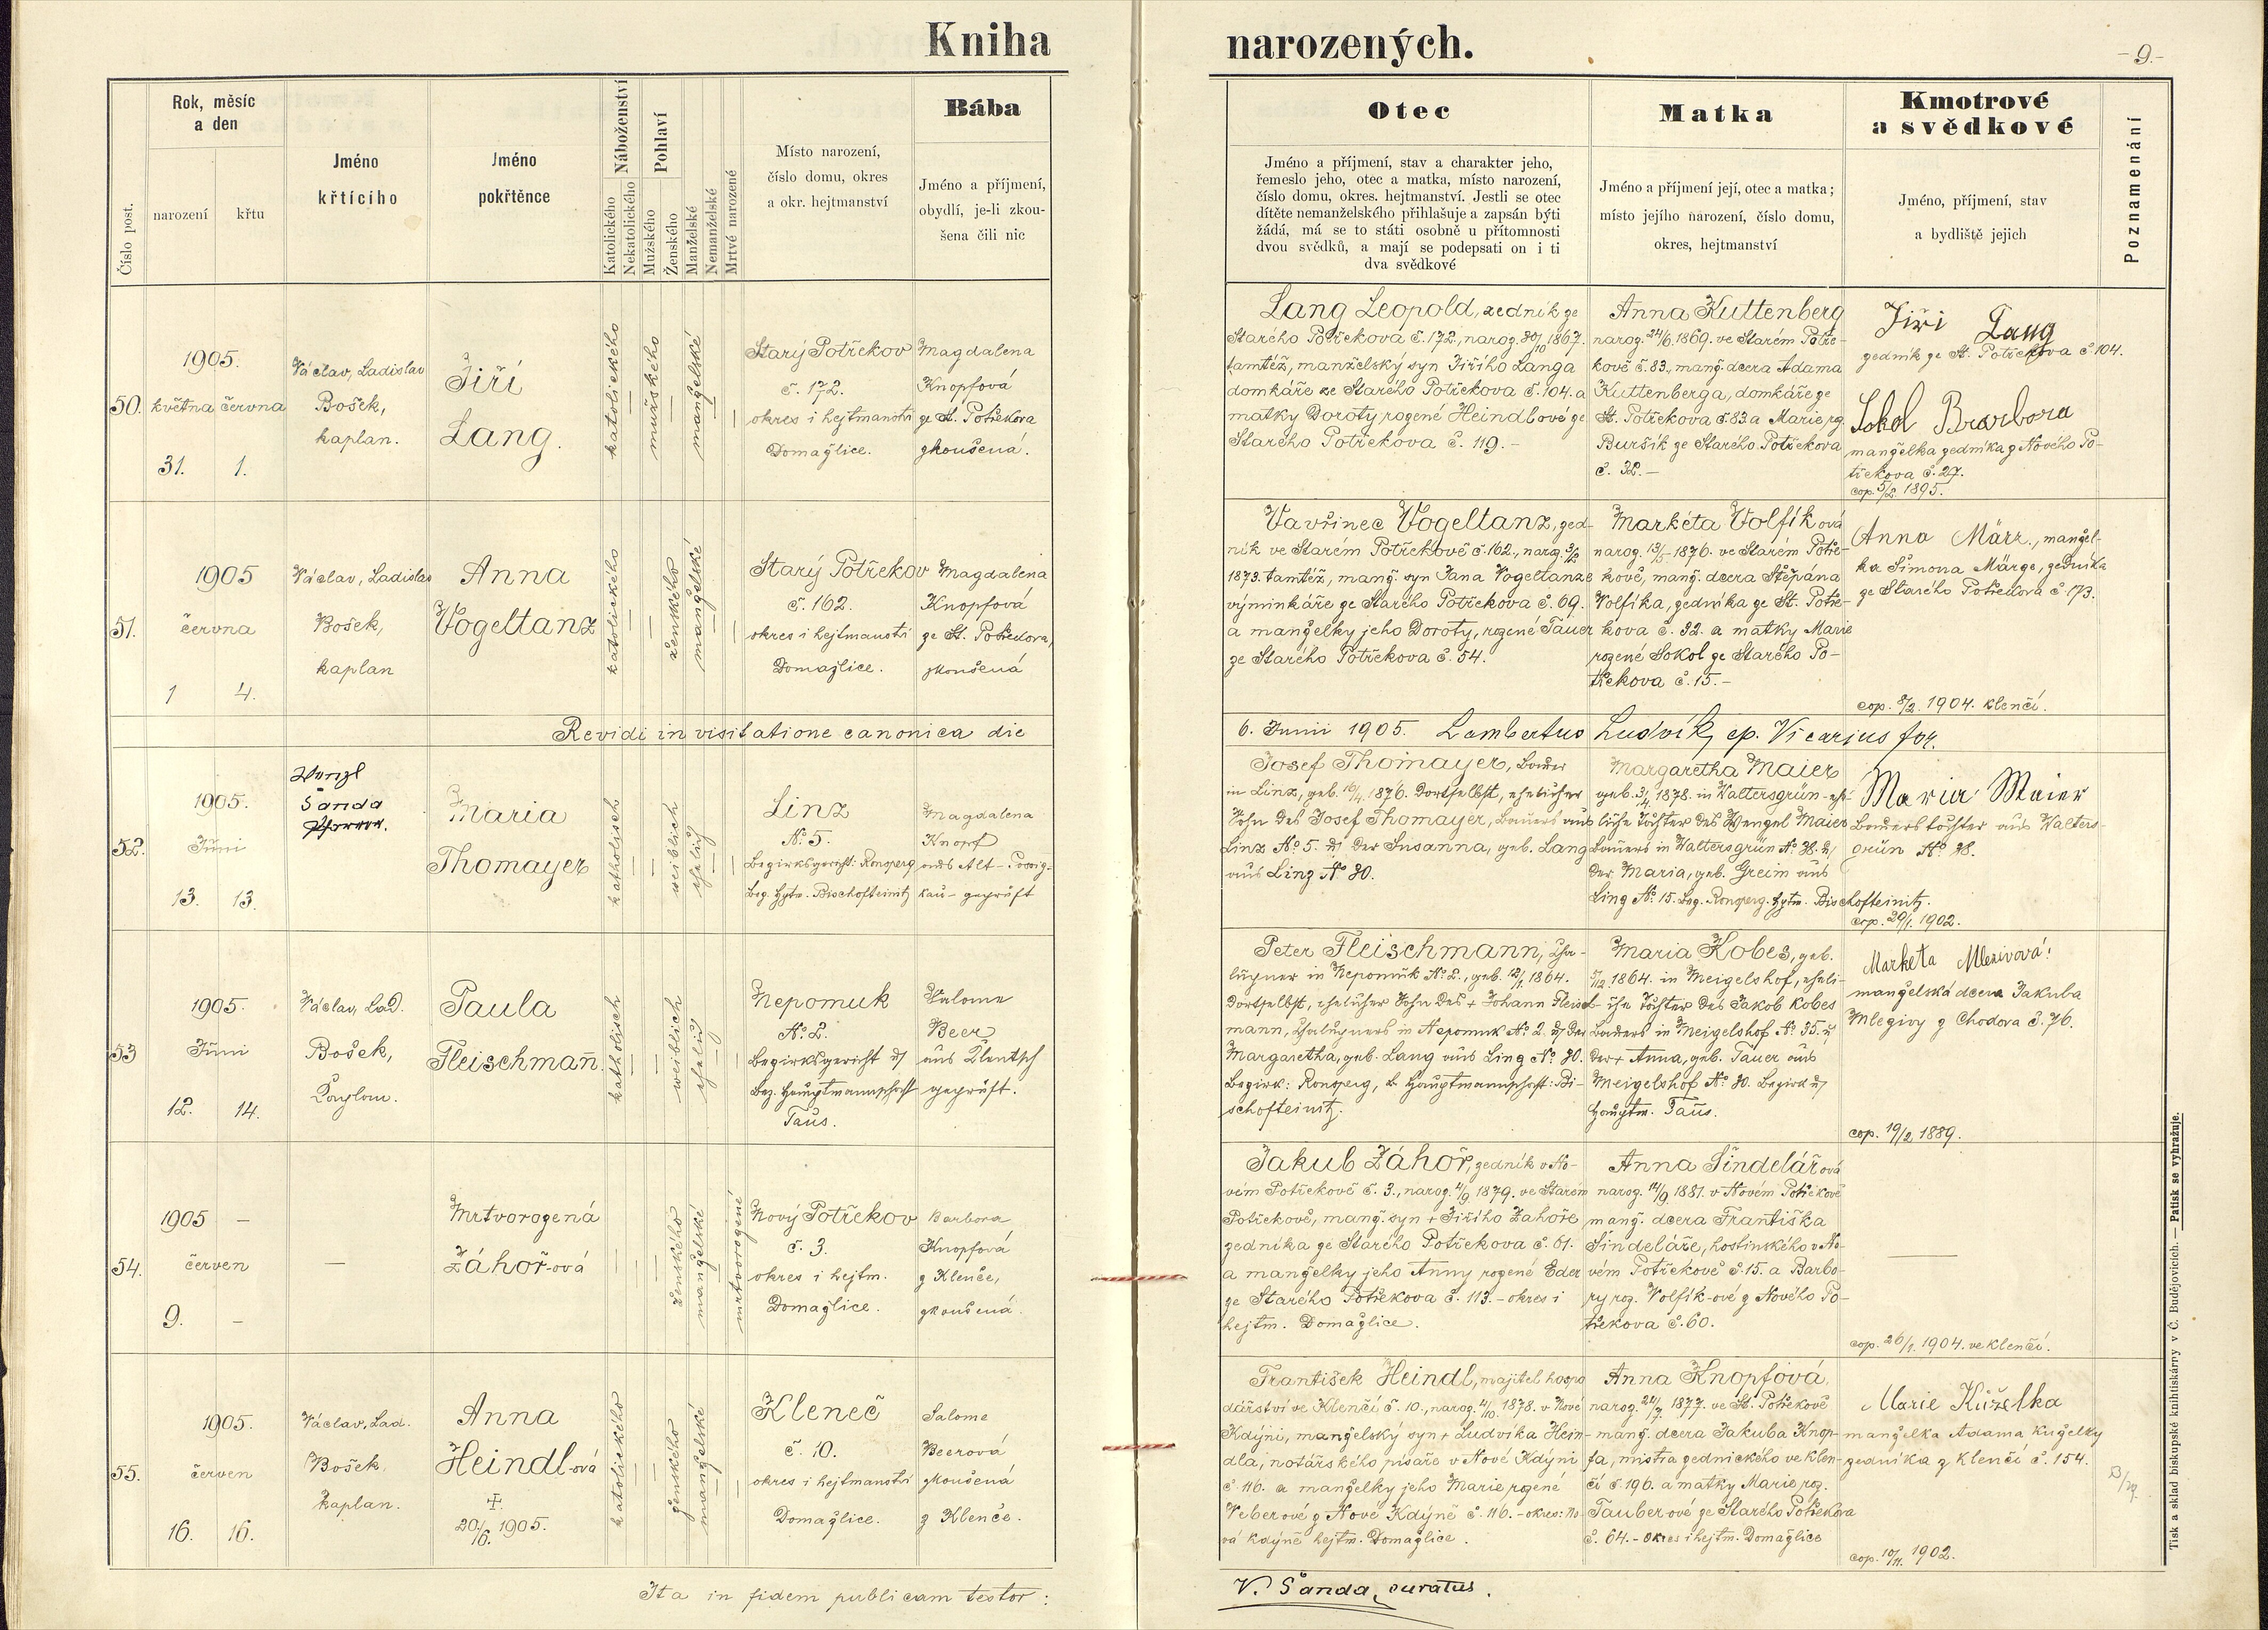 Kniha narozených.
-9.-
Číslo post.
Rok, měsíc
a den
narození
křtu
Jméno
křtícího
Jméno
pokřtěnce
Náboženství
Katolického
Nekatolického
Pohlaví
Mužského
Ženského
Manželské
Nemanželské
Mrtvé narozené
Místo narození,
číslo domu, okres
a okr. hejtmanství
Bába
Jméno a příjmení,
obydlí, je-li zkou-
šena čili nic
Otec
Jméno a příjmení, stav a charakter jeho,
řemeslo jeho, otec a matka, místo narození,
číslo domu, okres. hejtmanství. Jestli se otec
dítěte nemanželského přihlašuje a zapsán býti
žádá, má se to státi osobně u přítomnosti
dvou svědků, a mají se podepsati on i ti
dva svědkové
Matka
Jméno a příjmení její, otec a matka;
místo jejího narození, číslo domu,
okres, hejtmanství
Kmotrové
a svědkové
Jméno, příjmení, stav
a bydliště jejich
Poznamenání
50.
1905.
května června
31. 1.
Václav, Ladislav
Bošek,
kaplan.
Jiří
Lang.
katolického
mužského
manželské
Starý Potřekov
č. 172.
okres i hejtmanství
Domažlice.
Magdalena
Knopfová
ze St. Potřekova
zkoušená.
Lang Leopold, zedník ze
Starého Potřekova č. 172, naroz. 30/10 1867.
tamtéž, manželský syn Jiřího Langa
domkáře ze Starého Potřekova č. 104. a
matky Doroty, rozené Heindlové ze
Starého Potřekova č. 119.-
Anna Kuttenberg
naroz. 24/6 1869. ve Starém Potře-
kově č. 83., manž. dcera Adama
Kuttenberga, domkáře ze
St. Potřekova č. 83. a Marie rz.
Buršík ze Starého Potřekova
č. 32.-
Jiří Lang
zedník ze St. Potřekova č. 104.
Sokol Barbora
manželka zedníka z Nového Po-
třekova č. 27.
cop. 5/2. 1895.
51.
1905
června
1 4.
Václav, Ladislav
Bošek,
kaplan
Anna
Vogeltanz
katolického
ženského
manželské
Starý Potřekov
č. 162.
okres i hejtmanství
Domažlice.
Magdalena
Knopfová
ze St. Potřekova,
zkoušená
Vavřinec Vogeltanz, zed-
ník ve Starém Potřekově č. 162., naroz. 3/12
1873. tamtéž, manž. syn Jana Vogeltanze
výminkáře ze Starého Potřekova č. 69.
a manželky jeho Doroty, rozené Tauer
ze Starého Potřekova č. 54.
Markéta Volfíková
naroz. 13/5 1876. ve Starém Potře-
kově, manž. dcera Štěpána
Volfíka, zedníka ze St. Potře-
kova č. 32. a matky Marie
rozené Sokol ze Starého Po-
třekova č. 15.-
Anna März, manžel-
ka Šimona Märze, zedníka
ze Starého Potřekova č. 173.
cop. 8/2. 1904. Klenčí.
Revidi in visitatione canonica die 6. Junii 1905. Lambertus Ludvík, ep. Vicarius for.
52.
1905.
Juni
13. 13.
Wenzl
Šanda
Pfarrer.
Maria
Thomayer
katholisch
weiblich
ehelich
Linz
No. 5.
Bezirksgericht: Ronsperg
Bez. Hptm. Bischofteinitz
Magdalena
Knopf
aus Alt-Possig-
kau - geprüft
Josef Thomayer, Bauer
in Linz, geb. 16/4. 1876. dortselbst, ehelicher
Sohn des Josef Thomayer, Bauers aus
Linz No. 5. u. der Susanna, geb. Lang
aus Linz No. 30.
Margaretha Maier
geb. 3/4. 1878. in Waltersgrün - ehe-
liche Tochter des Wenzel Maier
Bauers in Waltersgrün No. 38. u.
der Maria, geb. Greim aus
Linz No. 15. Bez. Ronsperg. Hptm. Bischofteinitz.
Maria Maier
Bauerstochter aus Walters-
grün No. 38.
cop. 29/1. 1902.
53
1905.
Juni
12. 14.
Václav, Lad.
Bošek,
Kaplan.
Paula
Fleischmañ
katholisch
weiblich
ehelich
Nepomuk
No. 2.
Bezirksgericht u.
Bez. Hauptmannschaft
Taus.
Salome
Beer
aus Klentsch
geprüft.
Peter Fleischmann, Chа-
lupner in Nepomuk No. 2., geb. 12/1. 1864.
dortselbst, ehelicher Sohn des + Johann Fleisch-
mann, Chalupners in Nepomuk No. 2. u. der
Margaretha, geb. Lang aus Linz No. 30.
Bezirk: Ronsperg, B. Hauptmannschaft: Bi-
schofteinitz.
Maria Kobes, geb.
5/12. 1864. in Meigelshof, eheli-
che Tochter des Jakob Kobes
Bauers in Meigelshof No. 35. u.
der + Anna, geb. Tauer aus
Meigelshof No. 30. Bezirk u.
Hauptm. Taus.
Marketa Mlezivová!
manželská dcera Jakuba
Mlezivy z Chodova č. 76.
cop. 19/2. 1889.
54.
1905 -
červen
9. -
-
Mrtvorozená
Záhoř-ová
ženského
manželské
mrtvorozené
Nový Potřekov
č. 3.
okres i hejtm.
Domažlice.
Barbora
Knopfová
z Klenče,
zkoušená.
Jakub Záhoř, zedník v No-
vém Potřekově č. 3., naroz. 4/9 1879. ve Starém
Potřekově, manž. syn + Jiřího Záhoře
zedníka ze Starého Potřekova č. 61.
a manželky jeho Anny rozené Eder
ze Starého Potřekova č. 113. - okres i
hejtm. Domažlice.
Anna Šindelářová
naroz. 14/9 1881. v Novém Potřekově
manž. dcera Františka
Šindeláře, hostinského v No-
vém Potřekově č. 15. a Barbo-
ry roz. Volfík-ové z Nového Po-
třekova č. 60.
cop. 26/1. 1904. ve Klenčí.
55.
1905.
červen
16. 16.
Václav, Lad.
Bošek,
kaplan.
Anna
Heindl-ová
+
20/6. 1905.
katolického
ženského
manželské
Kleneč
č. 10.
okres i hejtmanství
Domažlice.
Salome
Beerová
zkoušená
z Klenče.
František Heindl, majitel hospo
dářství ve Klenčí č. 10., naroz. 4/10. 1878. v Nové
Kdýni, manželský syn + Ludvíka Hein-
dla, notářského písaře v Nové Kdýni
č. 116. a manželky jeho Marie rozené
Veberové z Nové Kdýně č. 116. - okres: No-
vá Kdýně hejtm. Domažlice.
Anna Knopfová,
naroz. 24/7. 1877. ve St. Potřekově
manž. dcera Jakuba Knop-
fa, mistra zednického ve Klen-
čí č. 196. a matky Marie roz.
Tauberové ze Starého Potřekova
č. 64. - okres i hejtm. Domažlice
Marie Kuželka
manželka Adama Kuželky
zedníka z Klenčí č. 154.
cop. 10/11. 1902.
Ita in fidem publicam testor: V. Šanda, curatus.
Tisk a sklad biskupské knihtiskárny v Č. Budějovicích. — Patisk se vyhražuje.